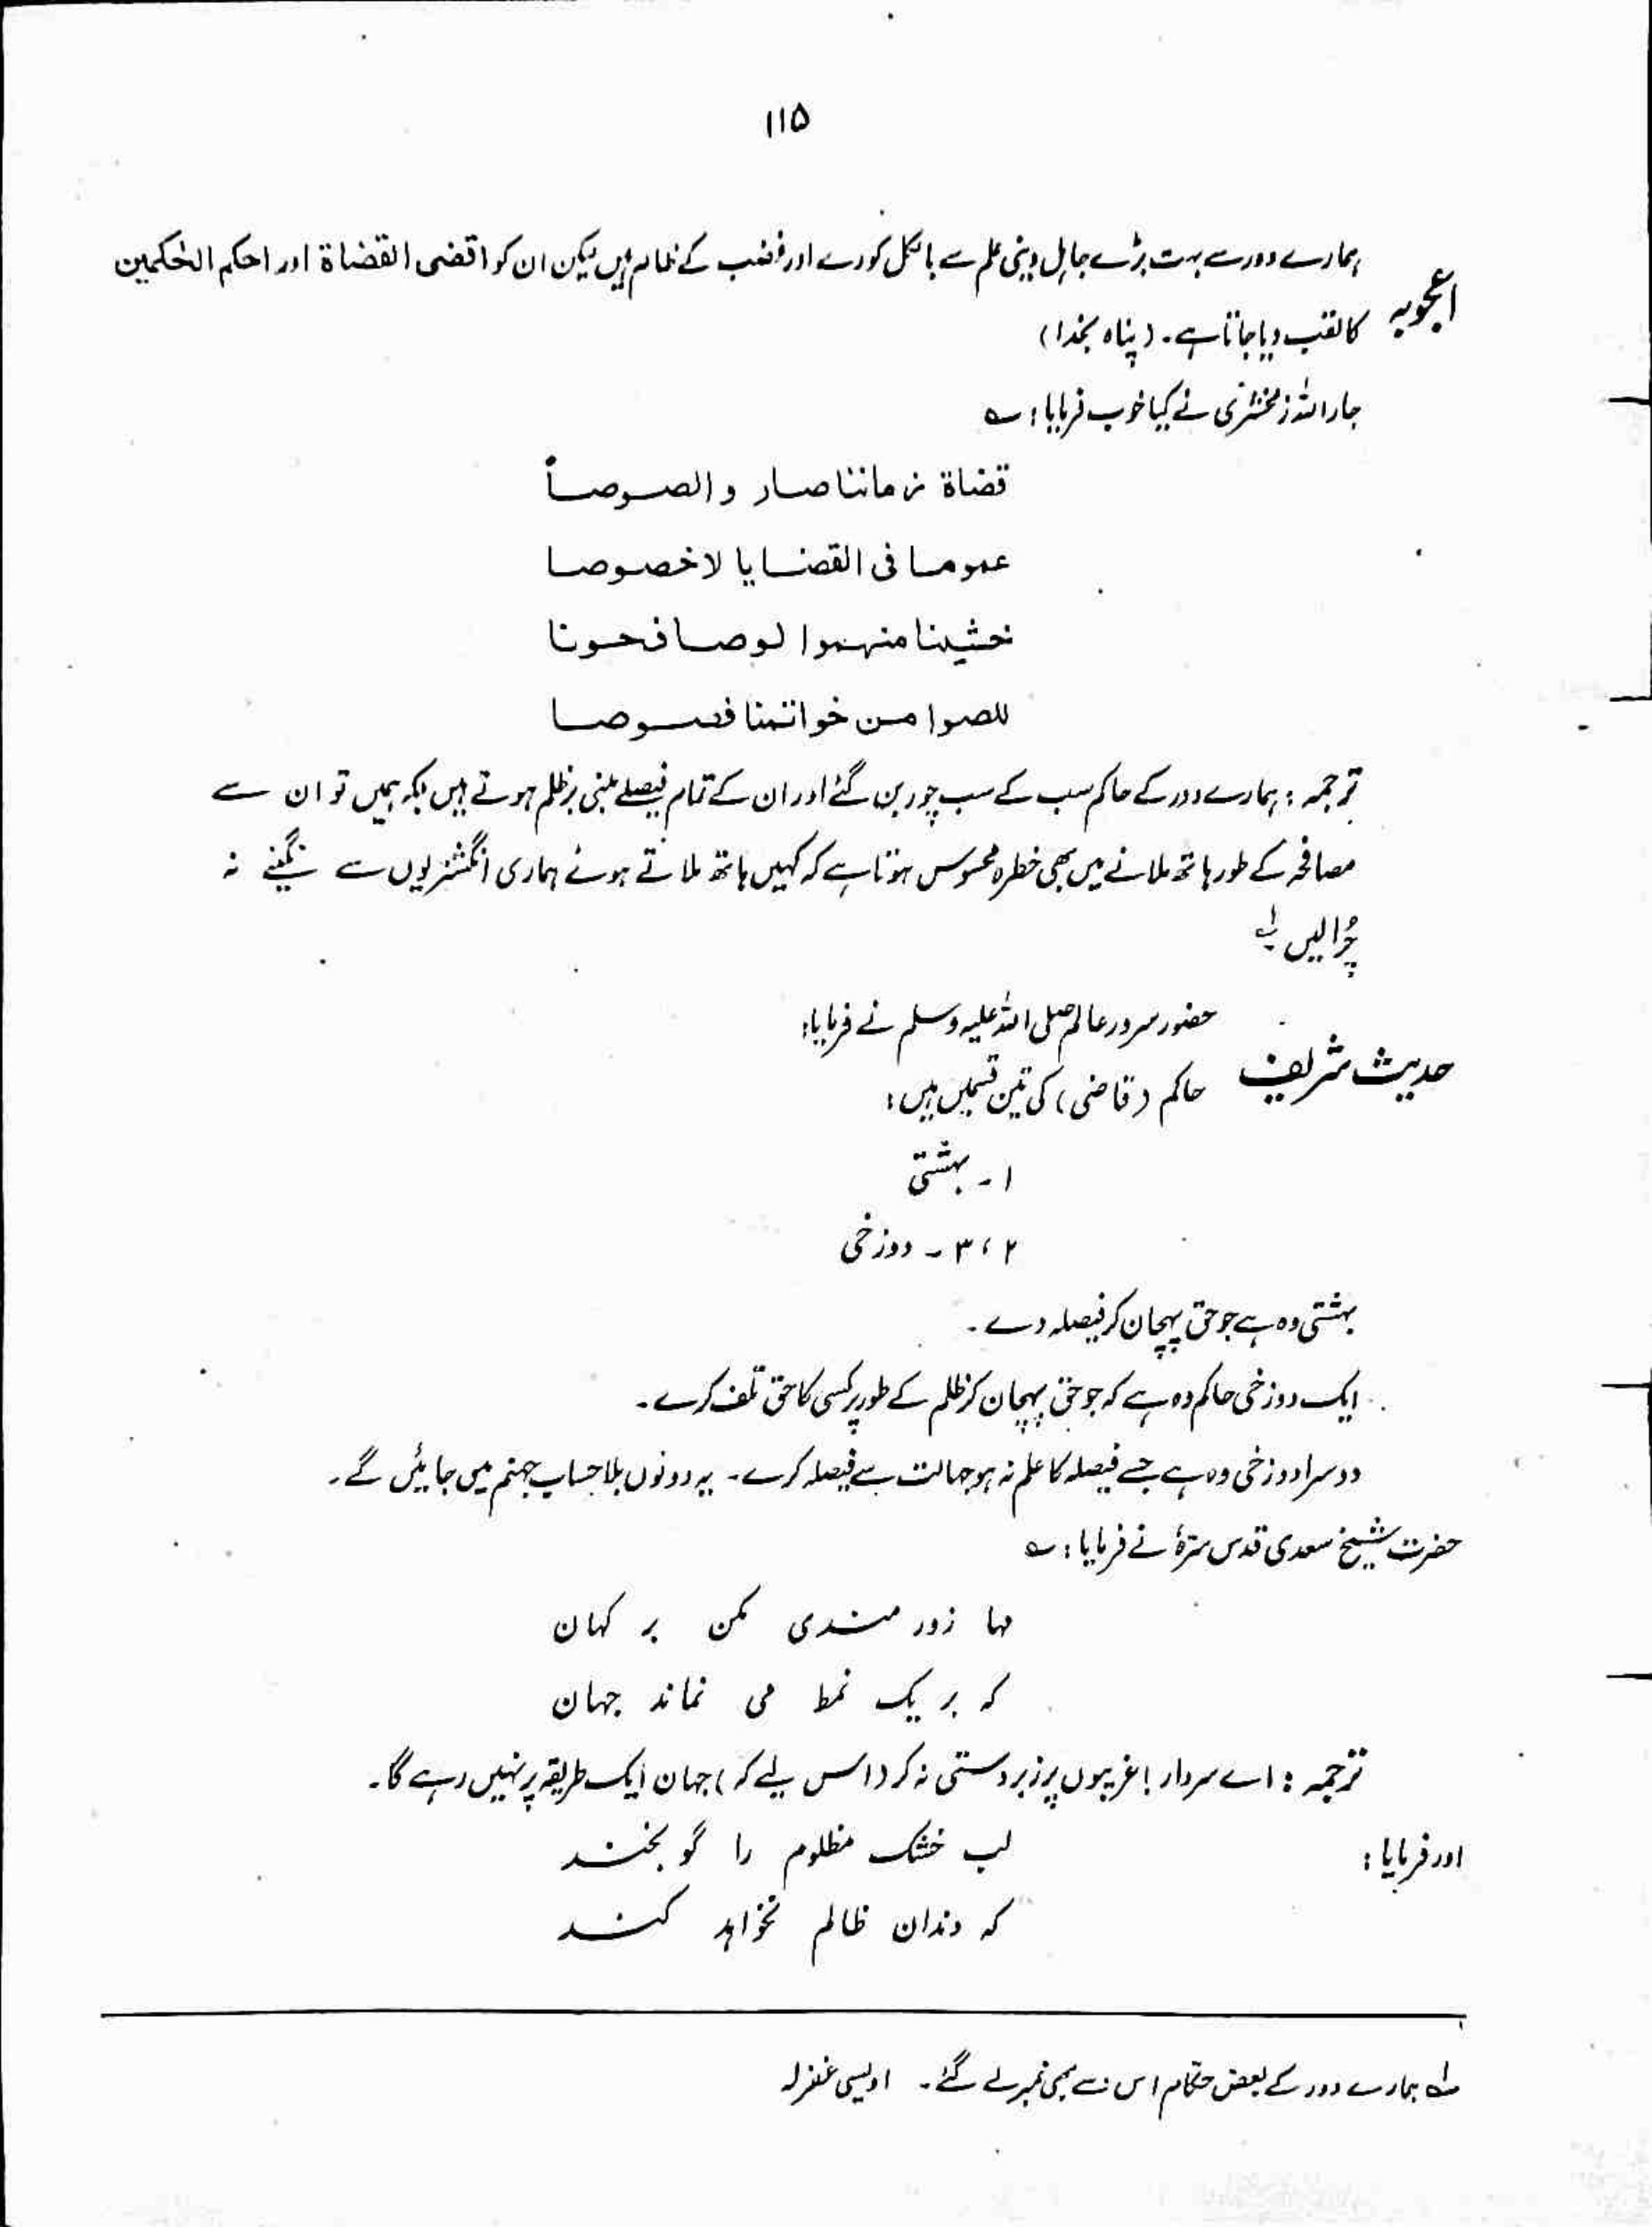 ۱۱۵
ہمارے دور سے بہت بڑے جاہل دینی علم سے بالکل کورے اور غضب کے ظالم ہیں لیکن ان کو اقضی القضاۃ اور احکم الحٰکمین
اعجوبہ
کا لقب دیا جاتا ہے۔ (پناہ بخدا)
جار اللہ زمخشری نے کیا خوب فرمایا : ؎
قضاۃ زماننا صار والصوصاً
عموما فی القضایا لا خصوصا
خشینا منہموا لو صافحونا
للصوا من خواتمنا فصوصا
ترجمہ : ہمارے دور کے حاکم سب کے سب چور بن گئے اور ان کے تمام فیصلے مبنی بر ظلم ہوتے ہیں بلکہ ہمیں تو ان سے
مصافحہ کے طور ہاتھ ملانے میں بھی خطرہ محسوس ہوتا ہے کہ کہیں ہاتھ ملاتے ہوئے ہماری انگشتریوں سے نگینے نہ
چُرا لیں لے
حضور سرور عالم صلی اللہ علیہ وسلم نے فرمایا:
حدیث شریف
حاکم (قاضی) کی تین قسمیں ہیں :
۱ - بہشتی
۲ ، ۳ - دوزخی
بہشتی وہ ہے جو حق پہچان کر فیصلہ دے ۔
ایک دوزخی حاکم وہ ہے کہ جو حق پہچان کر ظلم کے طور پر کسی کا حق تلف کرے ۔
دوسرا دوزخی وہ ہے جسے فیصلہ کا علم نہ ہو جہالت سے فیصلہ کرے ۔ یہ دونوں بلا حساب جہنم میں جائیں گے ۔
حضرت شیخ سعدی قدس سرہٗ نے فرمایا : ؎
مہا زور مندی مکن بر کہان
کہ بر یک نمط می نماند جہان
ترجمہ : اے سردار ! غریبوں پر زبردستی نہ کر (اس لیے کہ) جہان ایک طریقہ پر نہیں رہے گا ۔
اور فرمایا :
لب خشک مظلوم را گو بخند
کہ دندان ظالم نخواہد کند
لے ہمارے دور کے بعض حکام اس سے بھی نمبر لے گئے ۔ اویسی غفرلہ